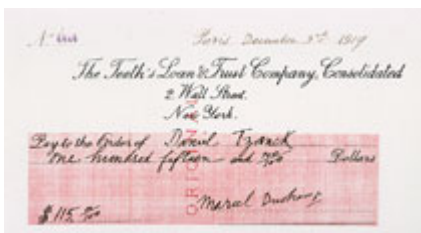 Nº
Paris December 3rd 1919
The Teeth's Loan & Trust Company, Consolidated
2 Wall Street.
New York.
Pay to the Order of Daniel Tzanck
One hundred fifteen and no/100 Dollars
ORIGINAL
$ 115 no/100
Marcel Duchamp